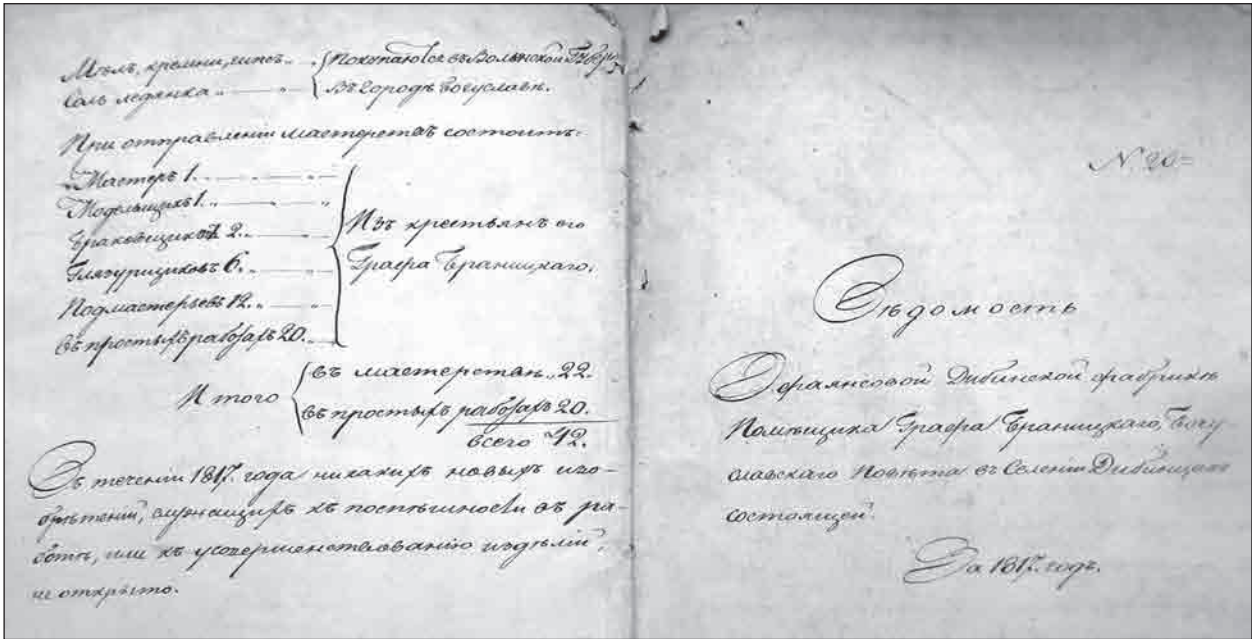 Мѣлъ, кремни, гипсъ „ Покупаются въ Волынской Губер:
соль ледянка „ въ городѣ Богуславѣ.
При отправленіи мастерства состоитъ:
„Мастеръ 1.
Модельщикъ 1. „
Браковщиковъ 2. „
Глазурщиковъ 6. „
Подмастерьевъ 12. „
Въ простыхъ работахъ 20.
Изъ крестьянъ его
Графа Браницкаго.
Итого
въ мастерствѣ „ 22.
въ простыхъ работахъ 20.
всего 42.
Въ теченіи 1817. года никакихъ новыхъ изо-
брѣтеній, служащихъ къ поспѣшности въ ра-
ботѣ, или къ усовершенствованію издѣлій,
не открыто.
N. 20=
Вѣдомость
О фаянсовой Дибинской фабрикѣ
Помѣщика Графа Браницкаго, Богу-
славскаго Повѣта въ Селеніи Дибинцахъ
состоящей.
За 1817. годъ.